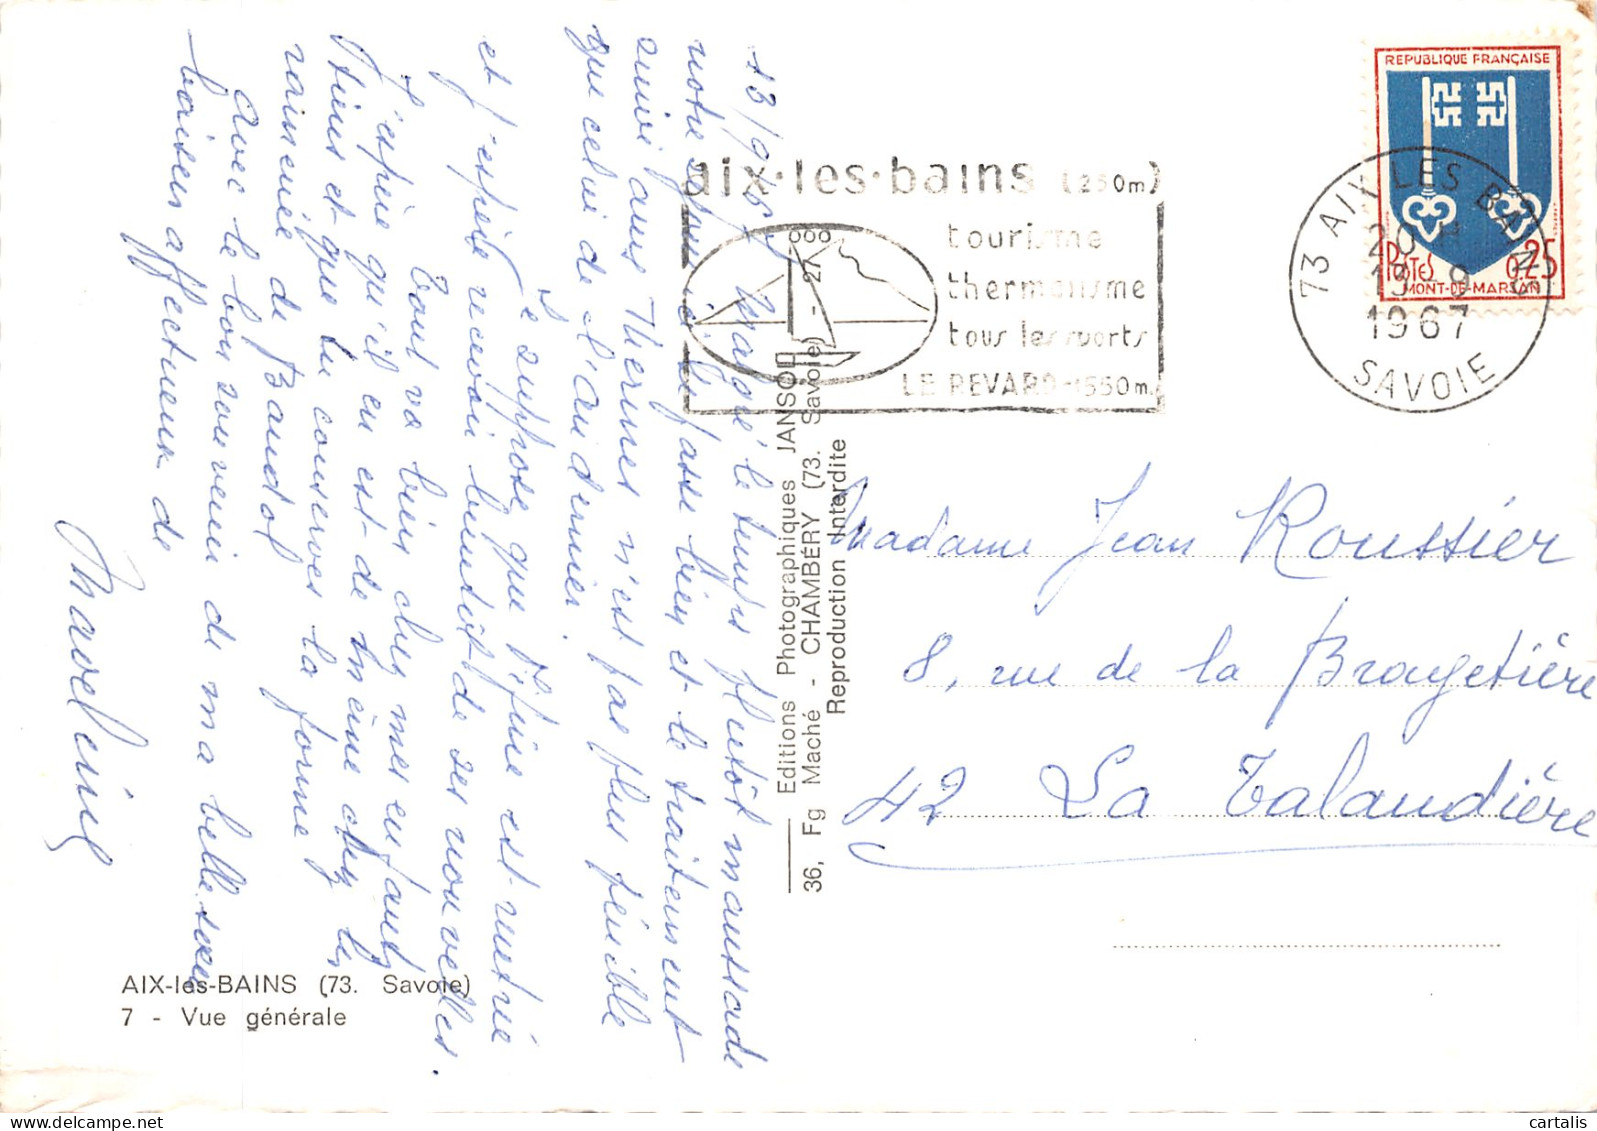 13/9/67 Malgré le temps plutôt maussade
notre séjour ici se passe bien et le traitement
suivi aux Thermes n'est pas plus pénible
que celui de l'an dernier.
Je suppose que Mme est rentrée
et j'espère recevoir bientôt de ses nouvelles.
Tout va bien chez mes enfants
J'espère qu'il en est de même chez les
tiens et que tu conserves la forme
ramenée de Bandol
Avec le bon souvenir de ma belle sœur
baisers affectueux de
Marcel
AIX-les-BAINS (73. Savoie)
7 - Vue générale
Editions Photographiques JANSOL
36, Fg Maché - CHAMBÉRY (73. Savoie) - 27
Reproduction Interdite
aix·les·bains (250m)
tourisme
thermalisme
tous les sports
LE REVARD-1550m.
REPUBLIQUE FRANÇAISE
POSTES 0,25
MONT-DE-MARSAN
73 AIX LES BAINS
20 H
13 - 9
1967
SAVOIE
Madame Jean Roussier
8, rue de la Brayetière
42 La Talaudière
cartalis